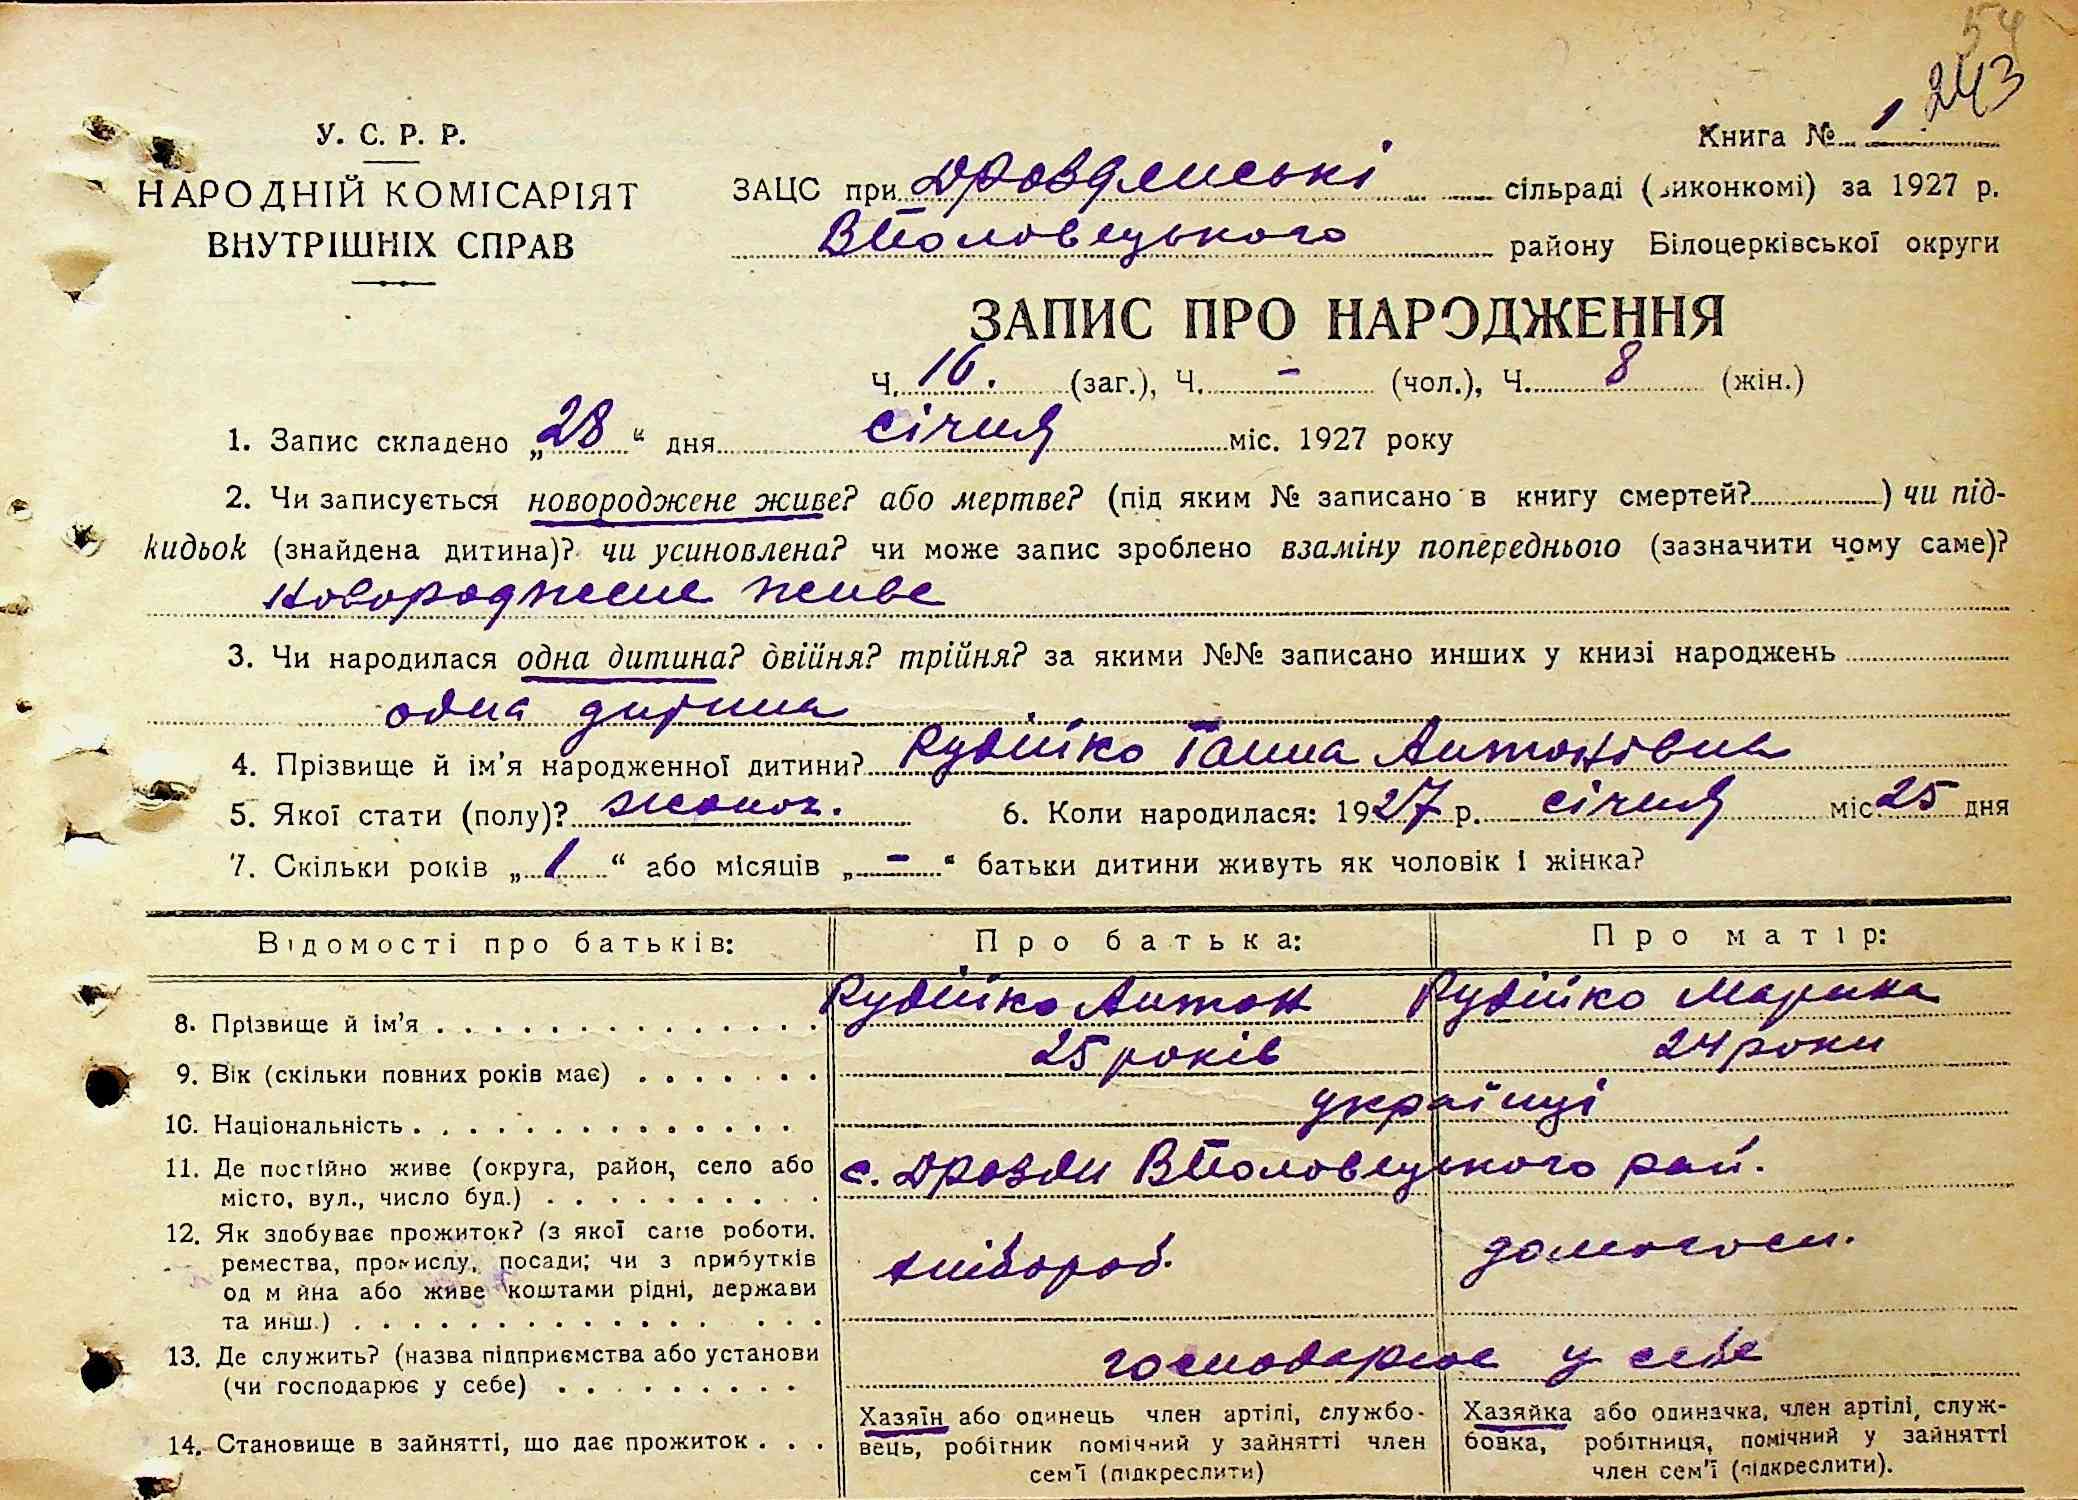 54
243
У. С. Р. Р.
Книга № 1
НАРОДНІЙ КОМІСАРІЯТ
ВНУТРІШНІХ СПРАВ
ЗАЦС при Дроздянські сільраді (виконкомі) за 1927 р.
ВПоловецького району Білоцерківської округи
ЗАПИС ПРО НАРОДЖЕННЯ
Ч. 16. (заг.), Ч. - (чол.), Ч. 8 (жін.)
1. Запис складено „28“ дня січня міс. 1927 року
2. Чи записується новороджене живе? або мертве? (під яким № записано в книгу смертей?) чи під-
кидьок (знайдена дитина)? чи усиновлена? чи може запис зроблено взаміну попереднього (зазначити чому саме)?
новороджене живе
3. Чи народилася одна дитина? двійня? трійня? за якими №№ записано инших у книзі народжень
одна дитина
4. Прізвище й ім'я народженної дитини? Рудійко Ганна Антонівна
5. Якої стати (полу)? жіноч. 6. Коли народилася: 1927 р. січня міс. 25 дня
7. Скільки років „1“ або місяців „-“ батьки дитини живуть як чоловік і жінка?
Відомості про батьків: Про батька: Про матір:
8. Прізвище й ім'я . . . Рудійко Антон Рудійко Марина
9. Вік (скільки повних років має) . . . 25 років 24 роки
10. Національність . . . українці
11. Де постійно живе (округа, район, село або
місто, вул., число буд.) . . . с. Дрозди ВПоловецького рай.
12. Як здобуває прожиток? (з якої саме роботи,
ремества, промислу, посади; чи з прибутків
од м йна або живе коштами рідні, держави
та инш.) . . . хлібороб. домогосп.
13. Де служить? (назва підприємства або установи
(чи господарює у себе) . . . господарює у себе
14. Становище в зайнятті, що дає прожиток . . .
Хазяїн або одинець член артілі, службо-
вець, робітник помічний у зайнятті член
сем'ї (підкреслити)
Хазяйка або одиначка, член артілі, служ-
бовка, робітниця, помічний у зайнятті
член сем'ї (підкреслити).